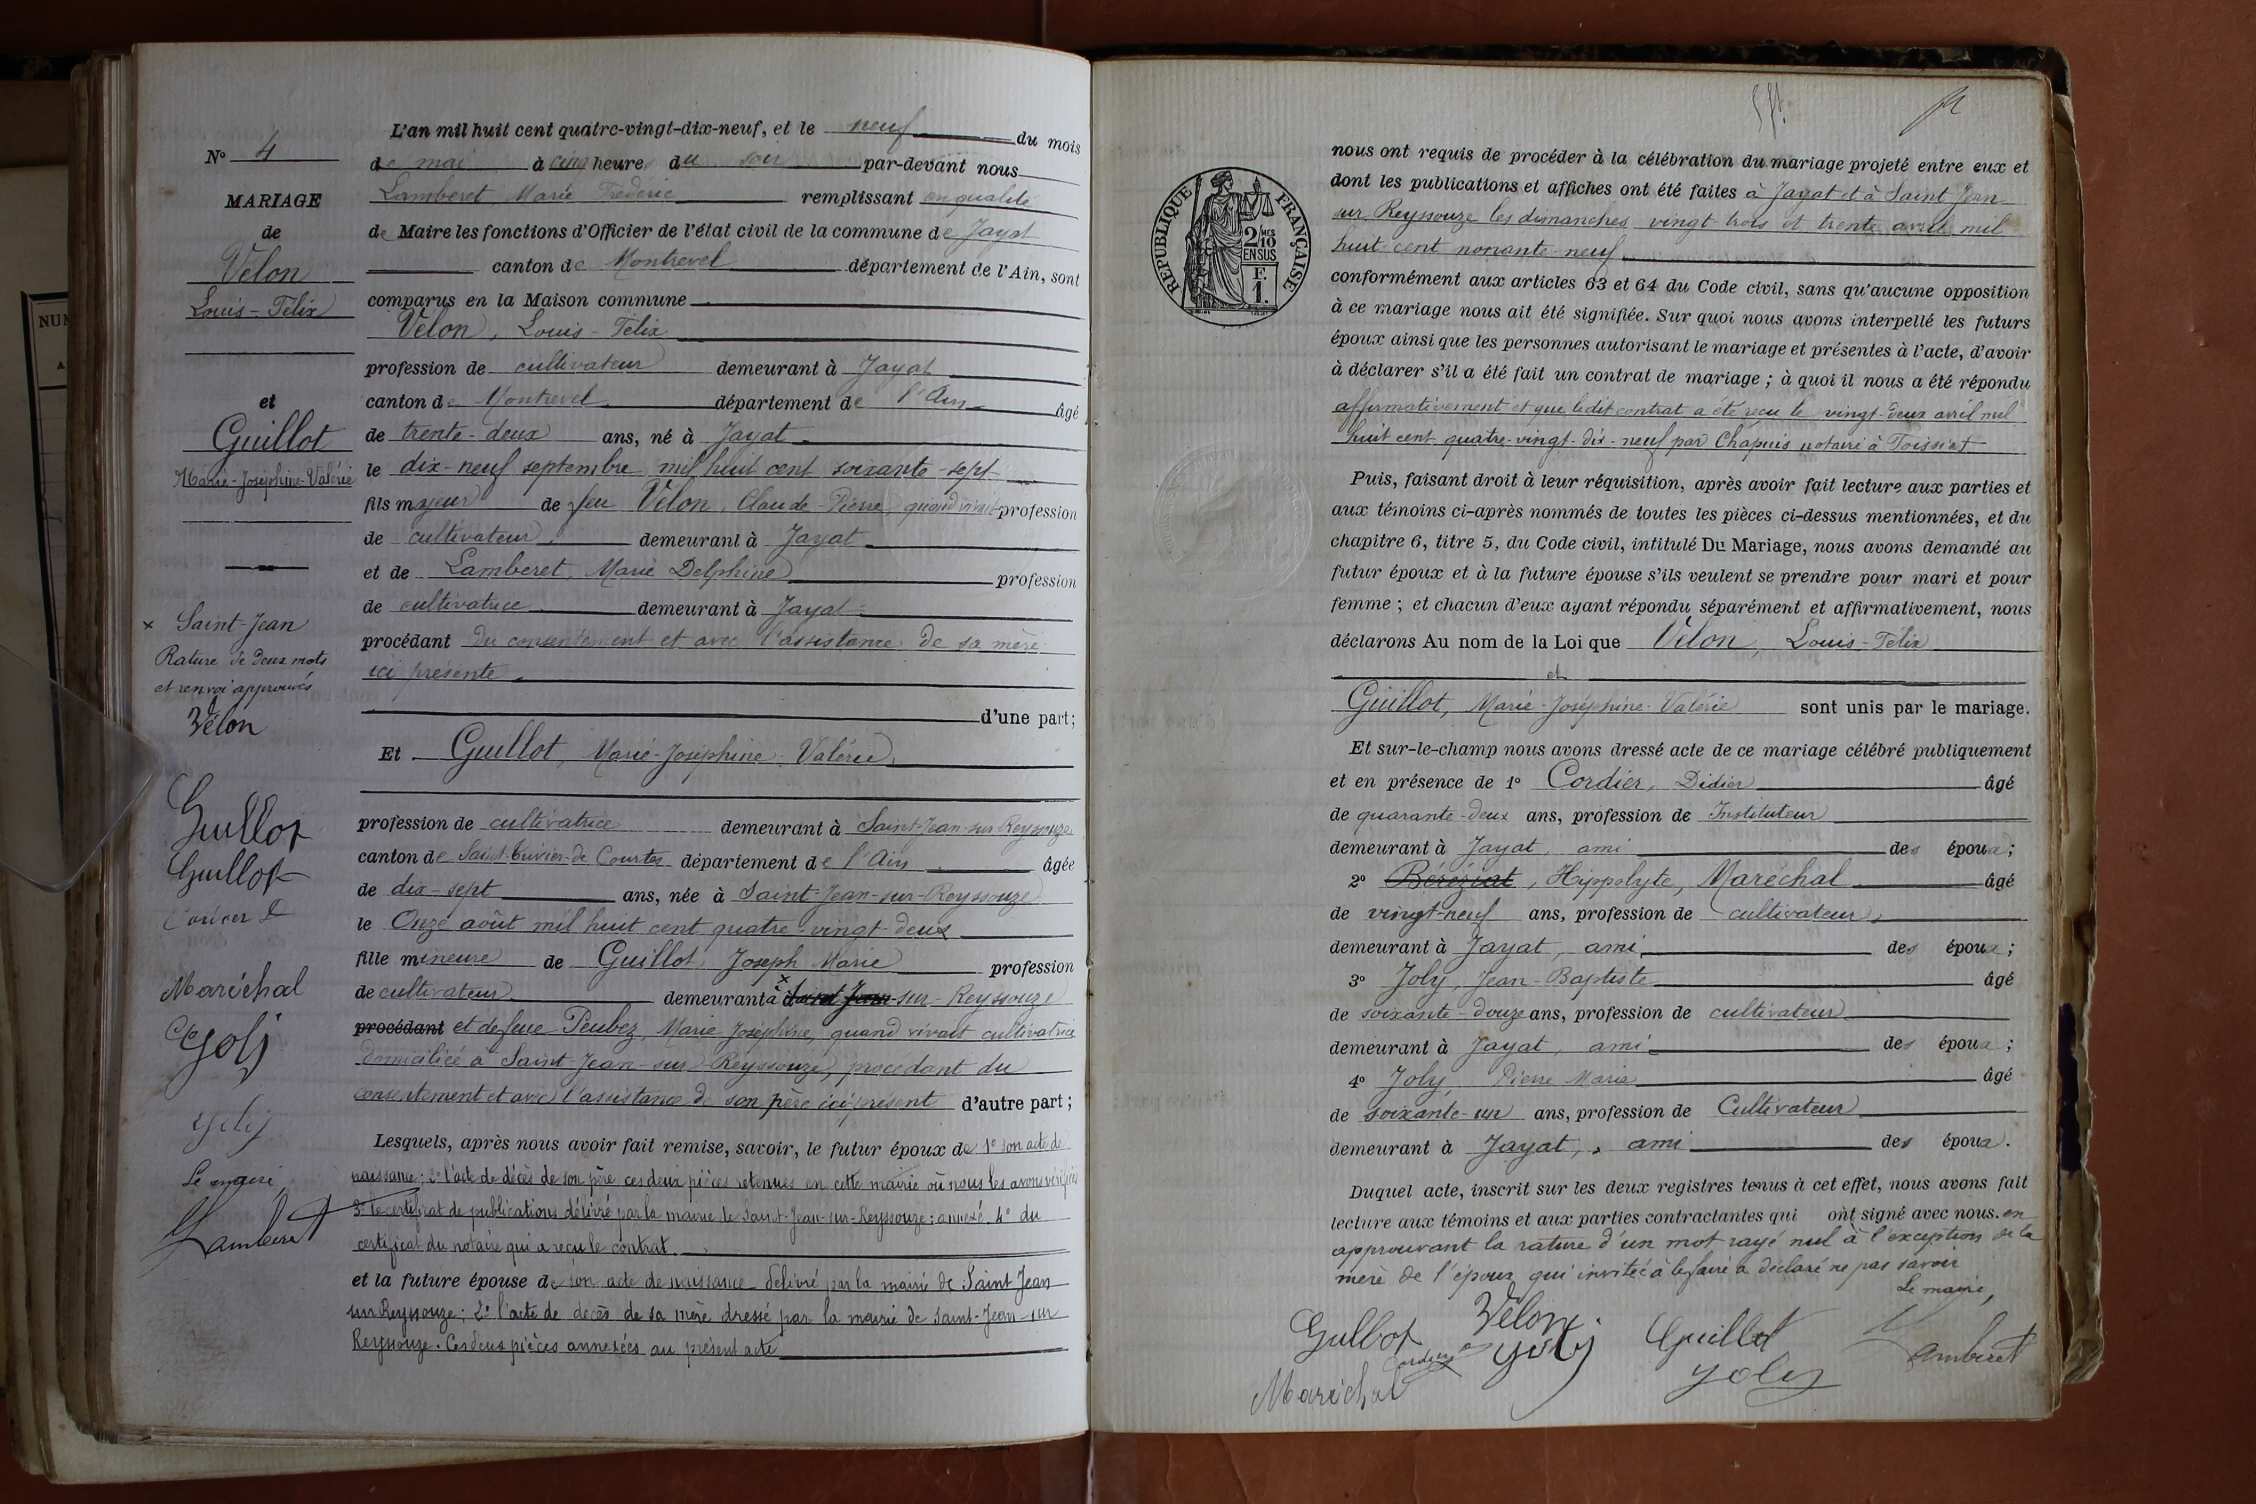 N° 4
MARIAGE
de
Vélon
Louis-Félix
et
Guillot
Marie-Joséphine-Valérie
x Saint-Jean
Rature de deux mots
et renvoi approuvés
Vélon
Guillot
Guillot
Maréchal
Joly
Joly
Le maire,
Lamberet
L'an mil huit cent quatre-vingt-dix-neuf, et le neuf du mois
de mai à cinq heures du soir par-devant nous
Lamberet, Marie Frédéric remplissant en qualité
de Maire les fonctions d'Officier de l'état civil de la commune de Jayat
canton de Montrevel département de l'Ain, sont
comparus en la Maison commune
Vélon, Louis-Félix
profession de cultivateur demeurant à Jayat
canton de Montrevel département de l'Ain âgé
de trente-deux ans, né à Jayat
le dix-neuf septembre mil huit cent soixante-sept
fils majeur de feu Vélon, Claude-Pierre, quand vivait profession
de cultivateur demeurant à Jayat
et de Lamberet, Marie Delphine profession
de cultivatrice demeurant à Jayat
procédant du consentement et avec l'assistance de sa mère
ici présente
d'une part;
Et Guillot, Marie-Joséphine-Valérie
profession de cultivatrice demeurant à Saint-Jean-sur-Reyssouze
canton de Saint-Trivier-de Courtes département de l'Ain âgée
de dix-sept ans, née à Saint-Jean-sur-Reyssouze
le Onze août mil huit cent quatre-vingt-deux
fille mineure de Guillot, Joseph Marie profession
de cultivateur demeurant à x Saint Jean-sur-Reyssouze
procédant et de feue Peubez, Marie Joséphine, quand vivait cultivatrice
domiciliée à Saint Jean-sur-Reyssouze, procédant du
consentement et avec l'assistance de son père ici présent d'autre part;
Lesquels, après nous avoir fait remise, savoir, le futur époux de 1° son acte de
naissance; 2° l'acte de décès de son père ces deux pièces retenues en cette mairie où nous les avons vérifiées
3° le certificat de publications délivré par la mairie de Saint-Jean-sur-Reyssouze: annexé. 4° du
certificat du notaire qui a reçu le contrat.
et la future épouse de son acte de naissance délivré par la mairie de Saint Jean
sur Reyssouze; 2° l'acte de décès de sa mère dressé par la mairie de Saint-Jean-sur
Reyssouze. Ces deux pièces annexées au présent acte
RÉPUBLIQUE FRANÇAISE
2/10 MES
EN SUS
F.
1.
nous ont requis de procéder à la célébration du mariage projeté entre eux et
dont les publications et affiches ont été faites à Jayat et à Saint Jean
sur Reyssouze les dimanches vingt-trois et trente avril mil
huit cent nonante-neuf
conformément aux articles 63 et 64 du Code civil, sans qu'aucune opposition
à ce mariage nous ait été signifiée. Sur quoi nous avons interpellé les futurs
époux ainsi que les personnes autorisant le mariage et présentes à l'acte, d'avoir
à déclarer s'il a été fait un contrat de mariage; à quoi il nous a été répondu
affirmativement et que ledit contrat a été reçu le vingt-deux avril mil
huit cent quatre-vingt-dix-neuf par Chapuis notaire à Foissiat
Puis, faisant droit à leur réquisition, après avoir fait lecture aux parties et
aux témoins ci-après nommés de toutes les pièces ci-dessus mentionnées, et du
chapitre 6, titre 5, du Code civil, intitulé Du Mariage, nous avons demandé au
futur époux et à la future épouse s'ils veulent se prendre pour mari et pour
femme; et chacun d'eux ayant répondu séparément et affirmativement, nous
déclarons Au nom de la Loi que Vélon, Louis-Félix
et
Guillot, Marie-Joséphine-Valérie sont unis par le mariage.
Et sur-le-champ nous avons dressé acte de ce mariage célébré publiquement
et en présence de 1° Cordier, Didier âgé
de quarante-deux ans, profession de Instituteur
demeurant à Jayat, ami des époux;
2° Béréziat, Hippolyte, Maréchal âgé
de vingt-neuf ans, profession de cultivateur,
demeurant à Jayat, ami des époux;
3° Joly, Jean-Baptiste âgé
de soixante-douze ans, profession de cultivateur
demeurant à Jayat, ami des époux;
4° Joly, Pierre Marie âgé
de soixante-un ans, profession de Cultivateur
demeurant à Jayat, ami des époux.
Duquel acte, inscrit sur les deux registres tenus à cet effet, nous avons fait
lecture aux témoins et aux parties contractantes qui ont signé avec nous. en
approuvant la rature d'un mot rayé nul à l'exception de la
mère de l'époux qui invitée à le faire a déclaré ne pas savoir
Le maire,
Guillot Vélon Guillot Lamberet
Cordier Joly Joly
Maréchal